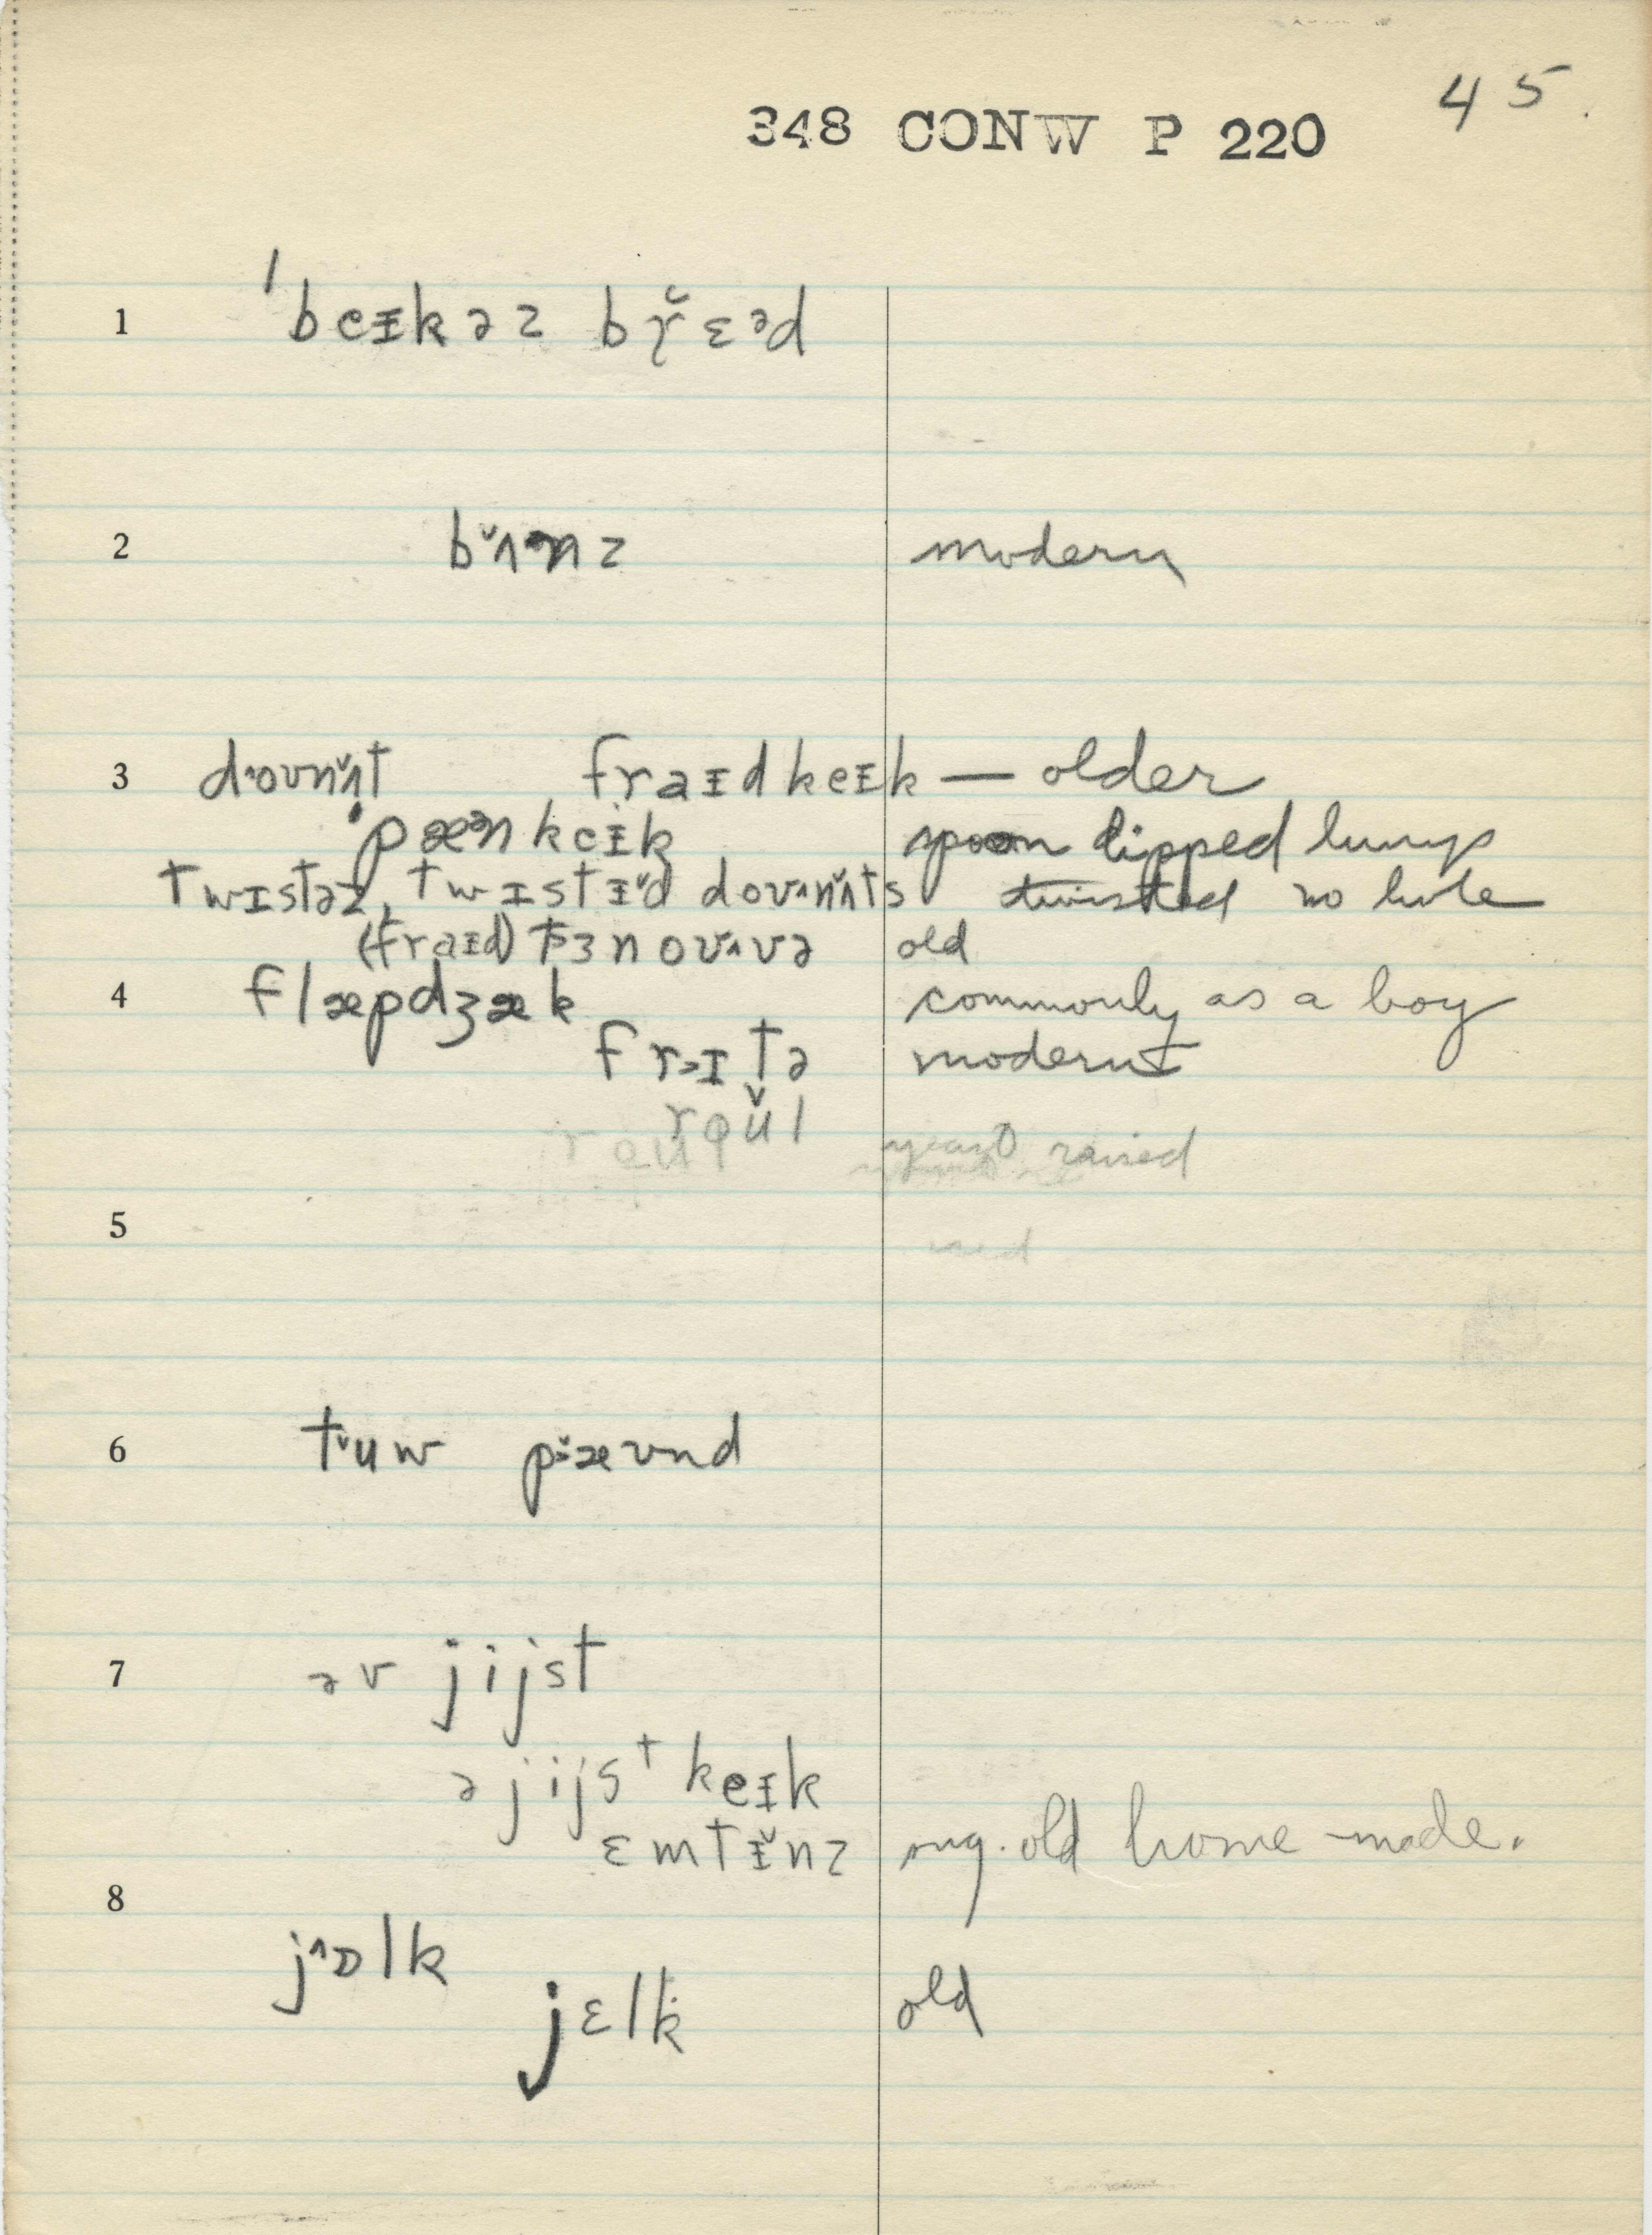 45.
348 CONW P 220
1 ˈbeɪkəz br̆ɛᵊd
2 bʌ̆nz modern
3 doʊnʌ̆t fraɪdkeɪk — older
ˈpæᵊnkeɪk spoon dipped lumps
twɪstəz, twɪstɪ̆d doʊnʌ̆ts twisted no hole
(fraɪd) tɜnoʊvə old
4 flæpdʒæk commonly as a boy
frɪtə modern
yeast raised
5
6 tuw pæʊnd
7 əv jijst
ə jijst keɪk
ɛmtɪ̆nz sug. old home-made.
8
jɒlk
jɛlk old